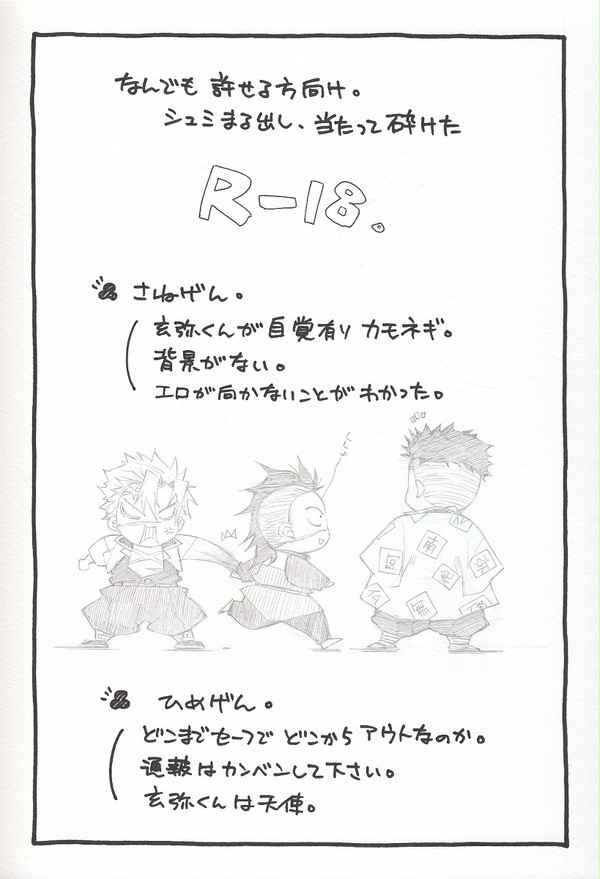 なんでも 許せる方向け。
シュミまる出し、当たって砕けた
R-18。
さねげん。
玄弥くんが自覚有り カモネギ。
背景がない。
エロが向かないことがわかった。
南
ひめげん。
どこまでセーフで どこから アウトなのか。
通報はカンベンして下さい。
玄弥くんは天使。